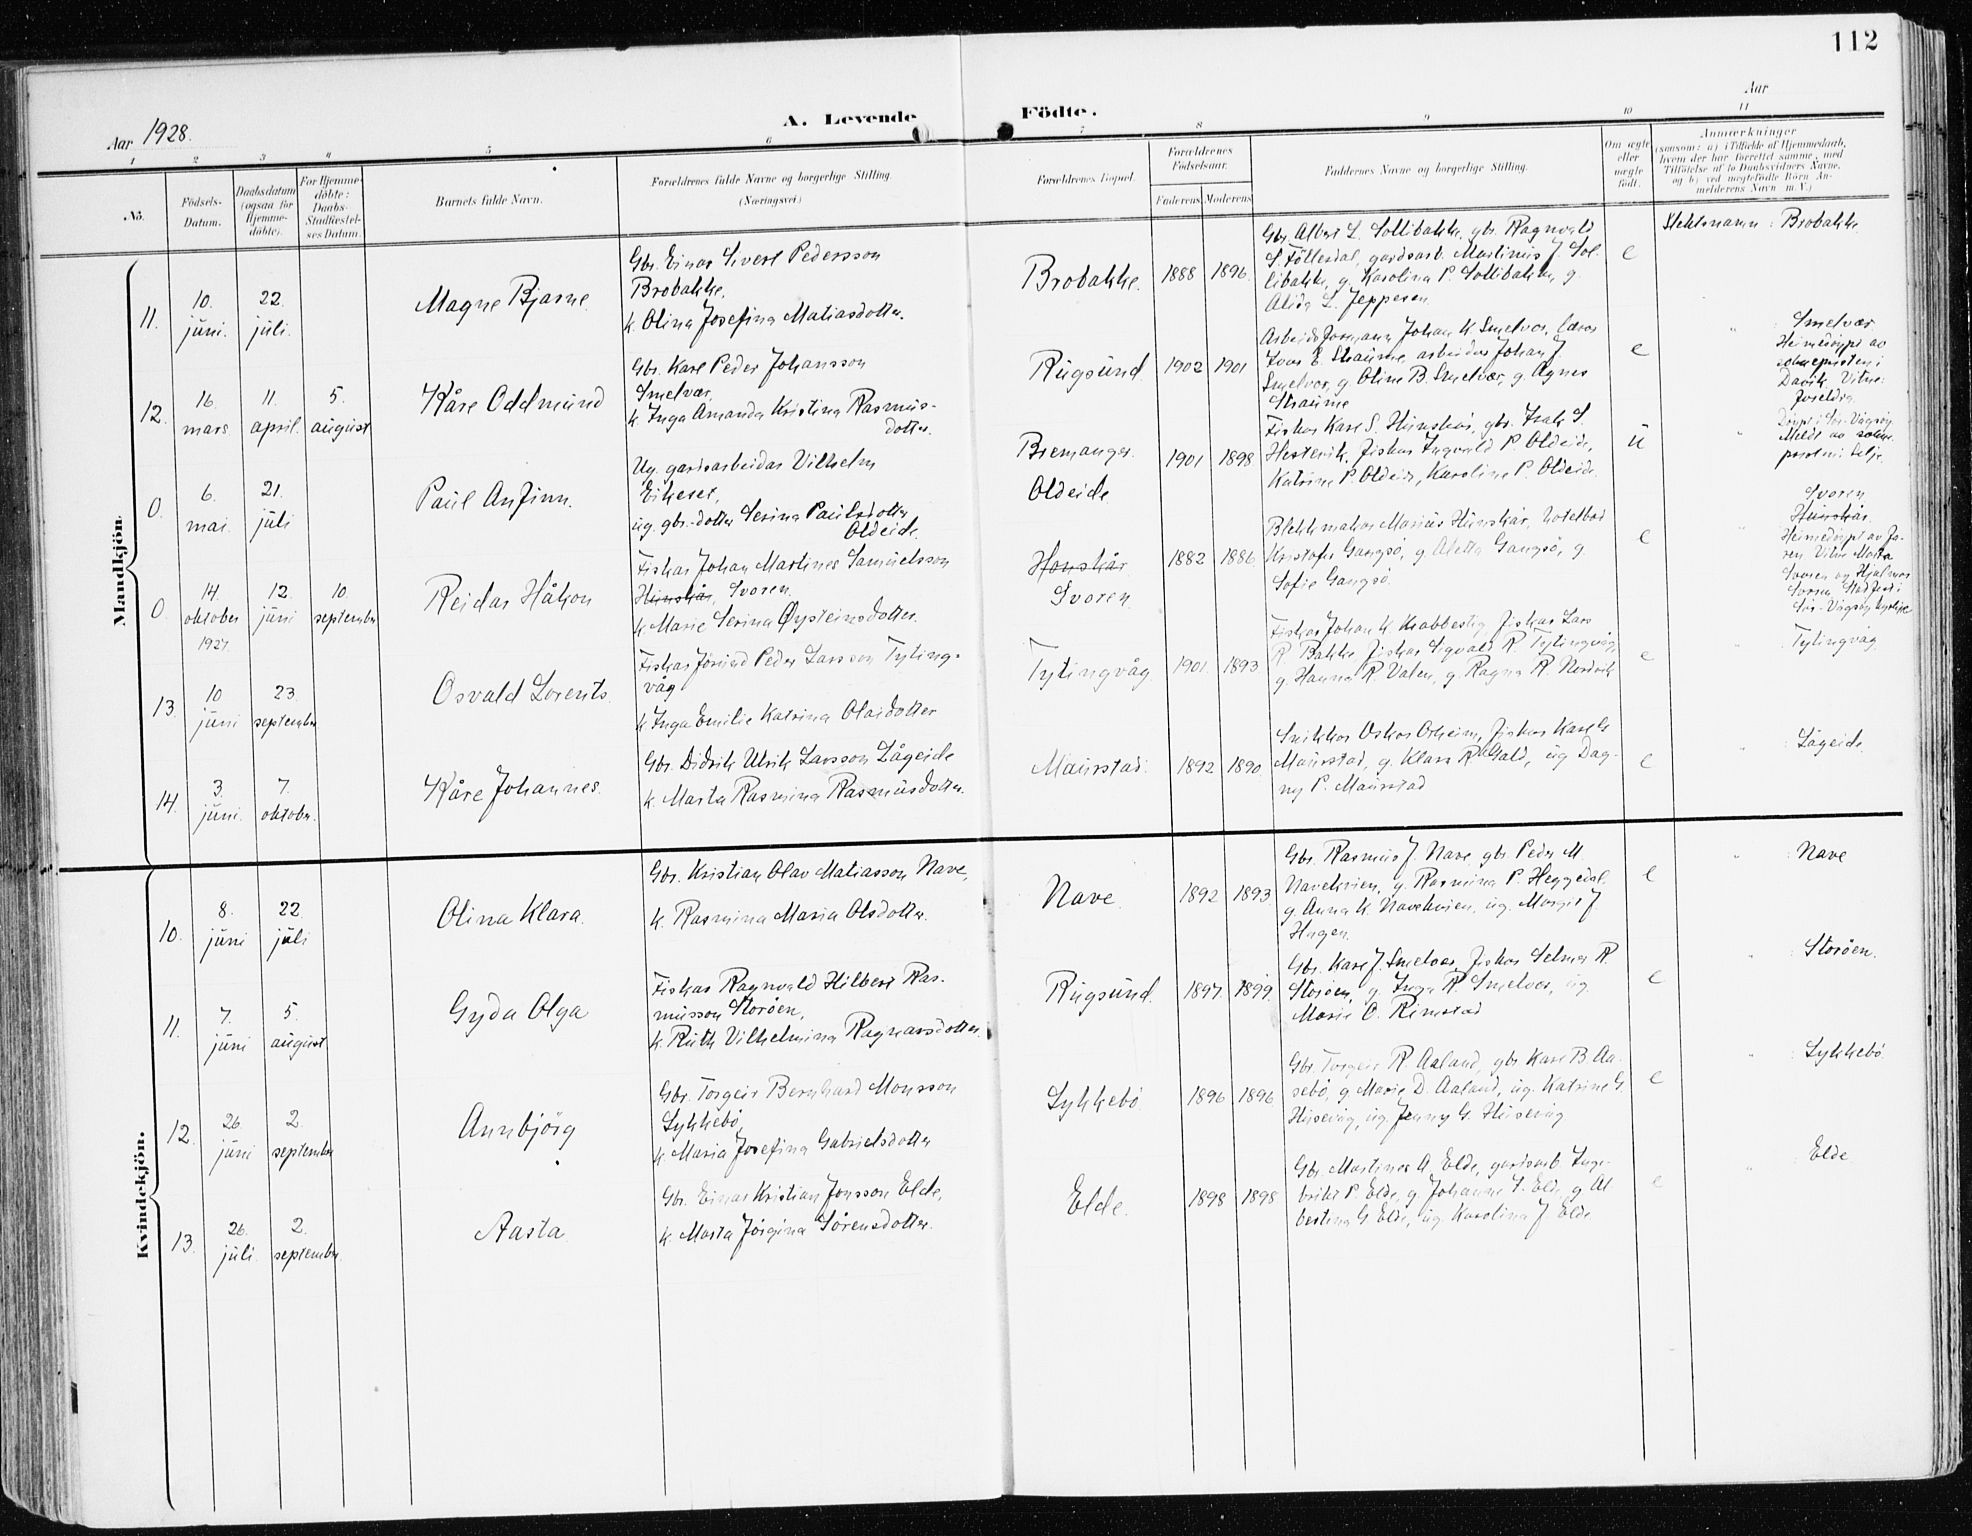 112
Aar 1928.
A. Levende Födte.
Aar
1 2 3 4 5 6 7 8 9 10 11
No.
Födsels-
Datum.
Daabsdatum
(ogsaa for
Hjemme-
döbte).
For Hjemme-
döbte:
Daabs-
Stadfæstel-
ses Datum.
Barnets fulde Navn.
Forældrenes fulde Navne og borgerlige Stilling.
(Næringsvei)
Forældrenes Bopæl.
Forældrenes
Födselsaar.
Faderens Moderens
Faddernes Navne og borgerlige Stilling.
Om ægte
eller
uægte
födt.
Anmærkninger
(saasom: a) i Tilfælde af Hjemmedaab,
hvem der har forrettet samme, med
Tilföielse af to Daabsvidners Navne,
og b) ved uegtefödte Börn An-
melderens Navn m. V.)
Mandkjön.
11.
10.
juni.
22.
juli.
Magne Bjarne.
Gbr. Einar Sivert Pedersson
Brobakke,
k. Olina Josefina Matiasdotter
Brobakke.
1888 1896
Gbr. Albert L. Sollibakke, gbr. Ragnvald
S. Föllesdal, gardsarb. Martinius J. Sol-
libakke, g. Karolina P. Sollibakke, g.
Alida L. Jeppesen
e
Slektsnamn: Brobakke
12.
16.
mars
11.
april.
5.
august
Kåre Oddmund
Gbr. Karl Peder Johansson
Smelvær,
k. Inga Amanda Kristina Rasmus-
dotter.
Rugsund.
1902 1901
Arbeidsformann Johan K. Smelvær, lærar
Ivar E. Straume, arbeidar Johan J.
Smelvær, g. Oline B. Smelvær, g. Agnes
Straume
e
" : Smelvær.
Heimedöypt av
soknepresten i
Davik. Vitne:
foreldra.
0.
6.
mai.
21.
juli
Paul Anfinn.
Ug. gardsarbeidar Vilhelm
Eikeset,
ug. gbr.-dotter Serina Paulsdotter
Oldeide.
Bremanger.
Oldeide
1901 1898
Fiskar Karl S. Hunskår, gbr. Isak S.
Hestevik, fiskar Ingvald P. Oldeide,
Katrine P. Oldeide, Karoline P. Oldeide.
u
Döypt i Sör-Vågsöy.
Meldt av sokne-
presten i Selje.
0
14.
oktober
1927.
12.
juni
10.
september
Reidar Håkon
Fiskar Johan Martines Samuelsson
Hunskår, Svoren.
k. Marie Serina Øysteinsdotter.
Honskår
Svoren.
1882 1886
Blekkmakar Marius Hunskår,
Kristofer Gangsö, g. Aletta Gangsö, g.
Sofie Gangsö.
e
" Svoren
Hunskår.
Heimedöypt av
Vitne Marta
Svoren og Hjalmar
Svoren. Stadfest i
Sör-Vågsöy kyrkje
13.
10
juni
23.
september
Osvald Lorents.
Fiskar Jörund Peder Larsson Tyting-
våg
k. Inga Emilie Katrina Olaisdotter
Tytingvåg
1901. 1893.
Fiskar Johan K. Krabbestig, fiskar Lars
R. Bakke, fiskar Sigvald R. Tytingvåg,
g. Hanna R. Valen, g. Ragna R. Nordvik
e
" Tytingvåg
14.
3.
juni.
7.
oktober.
Kåre Johannes.
Gbr. Didrik Ulrik Larsson Lågeide
k. Marta Rasmina Rasmusdotter.
Maurstad.
1892 1890
Snikkar Oskar Orheim, fiskar Karl G
Maurstad, g. Klara R. Gald, ug Dag-
ny P. Maurstad
e
" : Lågeide.
Kvindekjön.
10.
8.
juni
22
juli
Olina Klara.
Gbr. Kristian Olav Matiasson Nave,
k. Rasmina Maria Olsdotter.
Nave.
1892 1893
Gbr. Rasmus J. Nave gbr. Peder M.
Navekvien, g. Rasmina P. Heggedal
g. Anna K. Navekvien, ug. Margit J
Hagen.
e
" : Nave
11.
7.
juni
5.
august
Gyda Olga
Fiskar Ragnvald Hilbert Ras-
musson Storöen,
k. Ruth Vilhelmina Ragnarsdotter.
Rugsund.
1897. 1899.
Gbr. Karl J. Smelvær, fiskar Selmer R
Storöen, g. Inga R. Smelvær, ug.
Marie O. Rimstad
e
" : Storöen.
12.
26.
juni
2.
september
Annbjörg
Gbr. Torgeir Bernhard Monsson
Lykkebö,
k. Maria Josefina Gabrielsdotter
Lykkebö
1896 1896
Gbr. Torgeir R Aaland, gbr Karl B. Aa-
sebö, g. Marie D. Aaland, ug. Katrine G
Husevåg, ug. Jenny G. Husevåg
e
" : Lykkebö
13.
26.
juli.
2.
september.
Aasta
Gbr. Einar Kristian Jonsson Elde,
k. Marta Jörgina Sörensdotter.
Elde.
1898 1898
Gbr. Martines A. Elde, gardsarb. Inge-
brikt P. Elde, g. Johanne S. Elde, g. Al-
bertina G Elde, ug. Karolina J. Elde
e
" : Elde